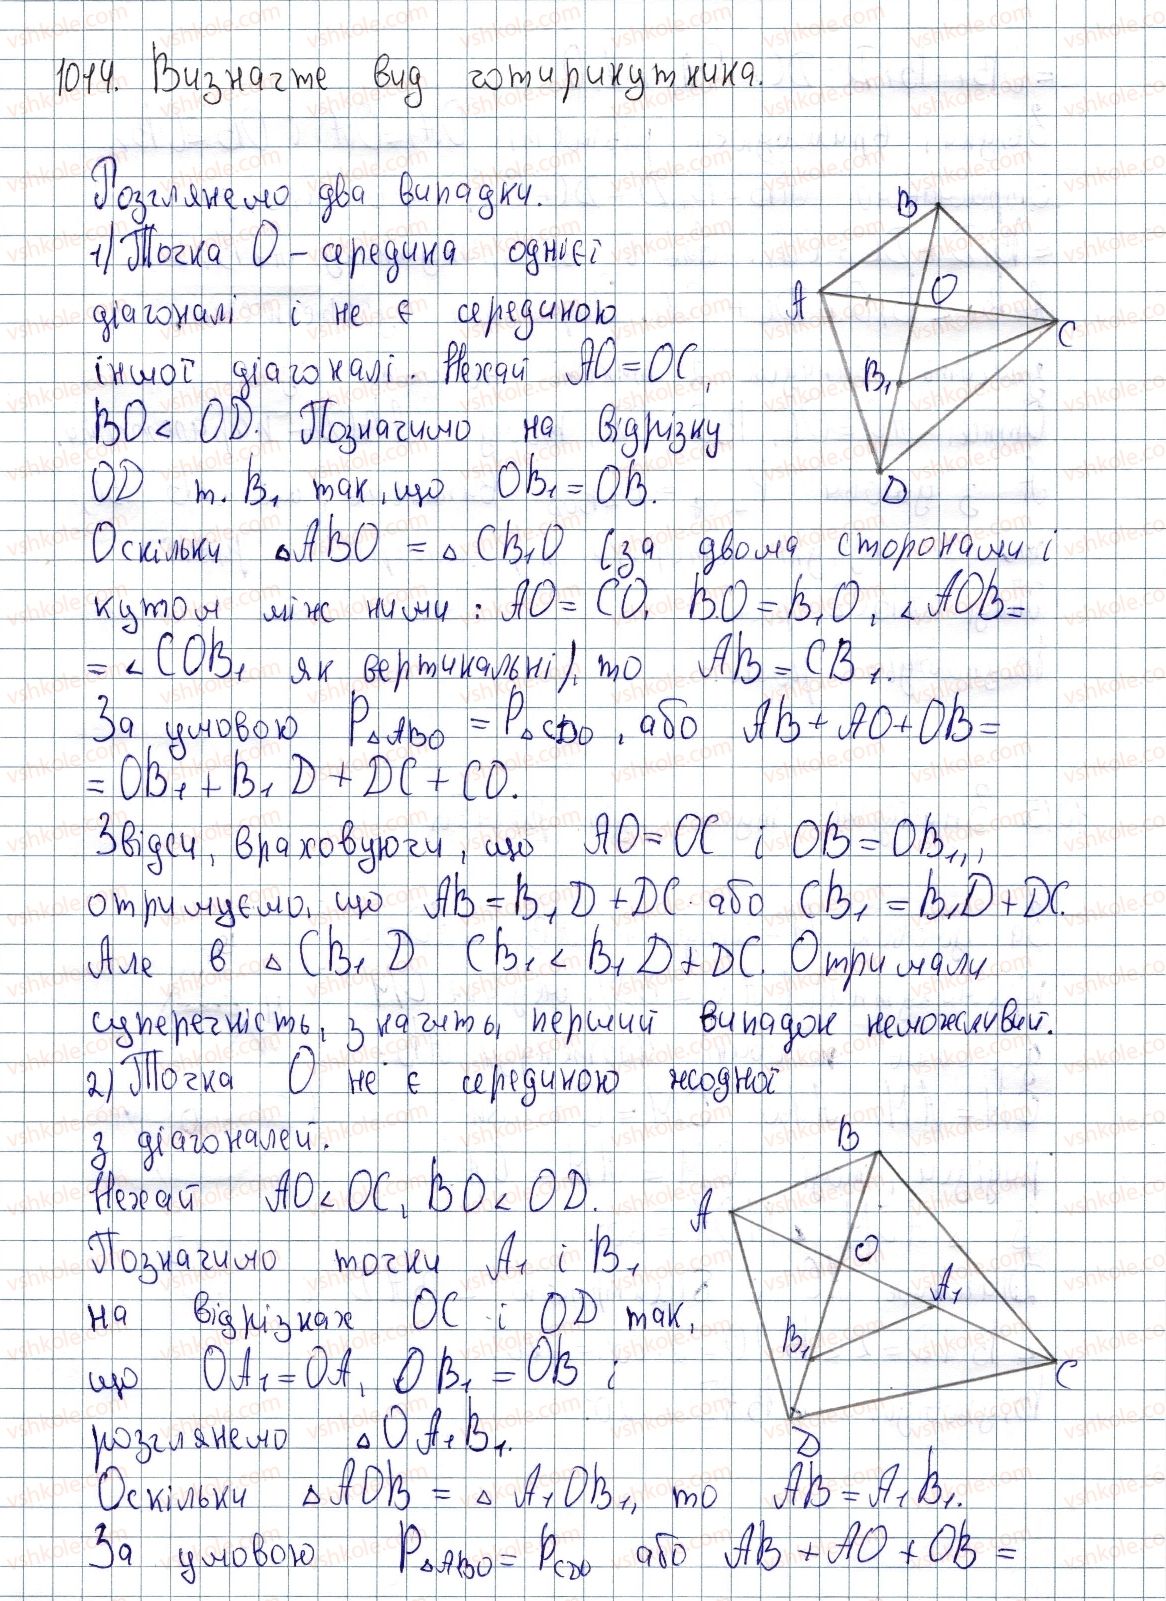 1014. Визначте вид чотирикутника.
Розглянемо два випадки.
1) Точка O – середина однієї
діагоналі і не є серединою
іншої діагоналі. Нехай AO = OC,
BO < OD. Позначимо на відрізку
OD т. B₁ так, що OB₁ = OB.
Оскільки △ABO = △CB₁O (за двома сторонами і
кутом між ними: AO = CO, BO = B₁O, ∠AOB =
= ∠COB₁ як вертикальні), то AB = CB₁.
За умовою P△ABO = P△CDO, або AB + AO + OB =
= OB₁ + B₁D + DC + CO.
Звідси, враховуючи, що AO = OC і OB = OB₁,
отримуємо, що AB = B₁D + DC або CB₁ = B₁D + DC.
Але в △CB₁D CB₁ < B₁D + DC. Отримали
суперечність, значить, перший випадок неможливий.
2) Точка O не є серединою жодної
з діагоналей.
Нехай AO < OC, BO < OD.
Позначимо точки A₁ і B₁
на відрізках OC і OD так,
що OA₁ = OA, OB₁ = OB і
розглянемо △OA₁B₁.
Оскільки △AOB = △A₁OB₁, то AB = A₁B₁.
За умовою P△ABO = PCDO або AB + AO + OB =
B
A
O
C
B₁
D
B
A
O
A₁
B₁
C
D
vshkole.com